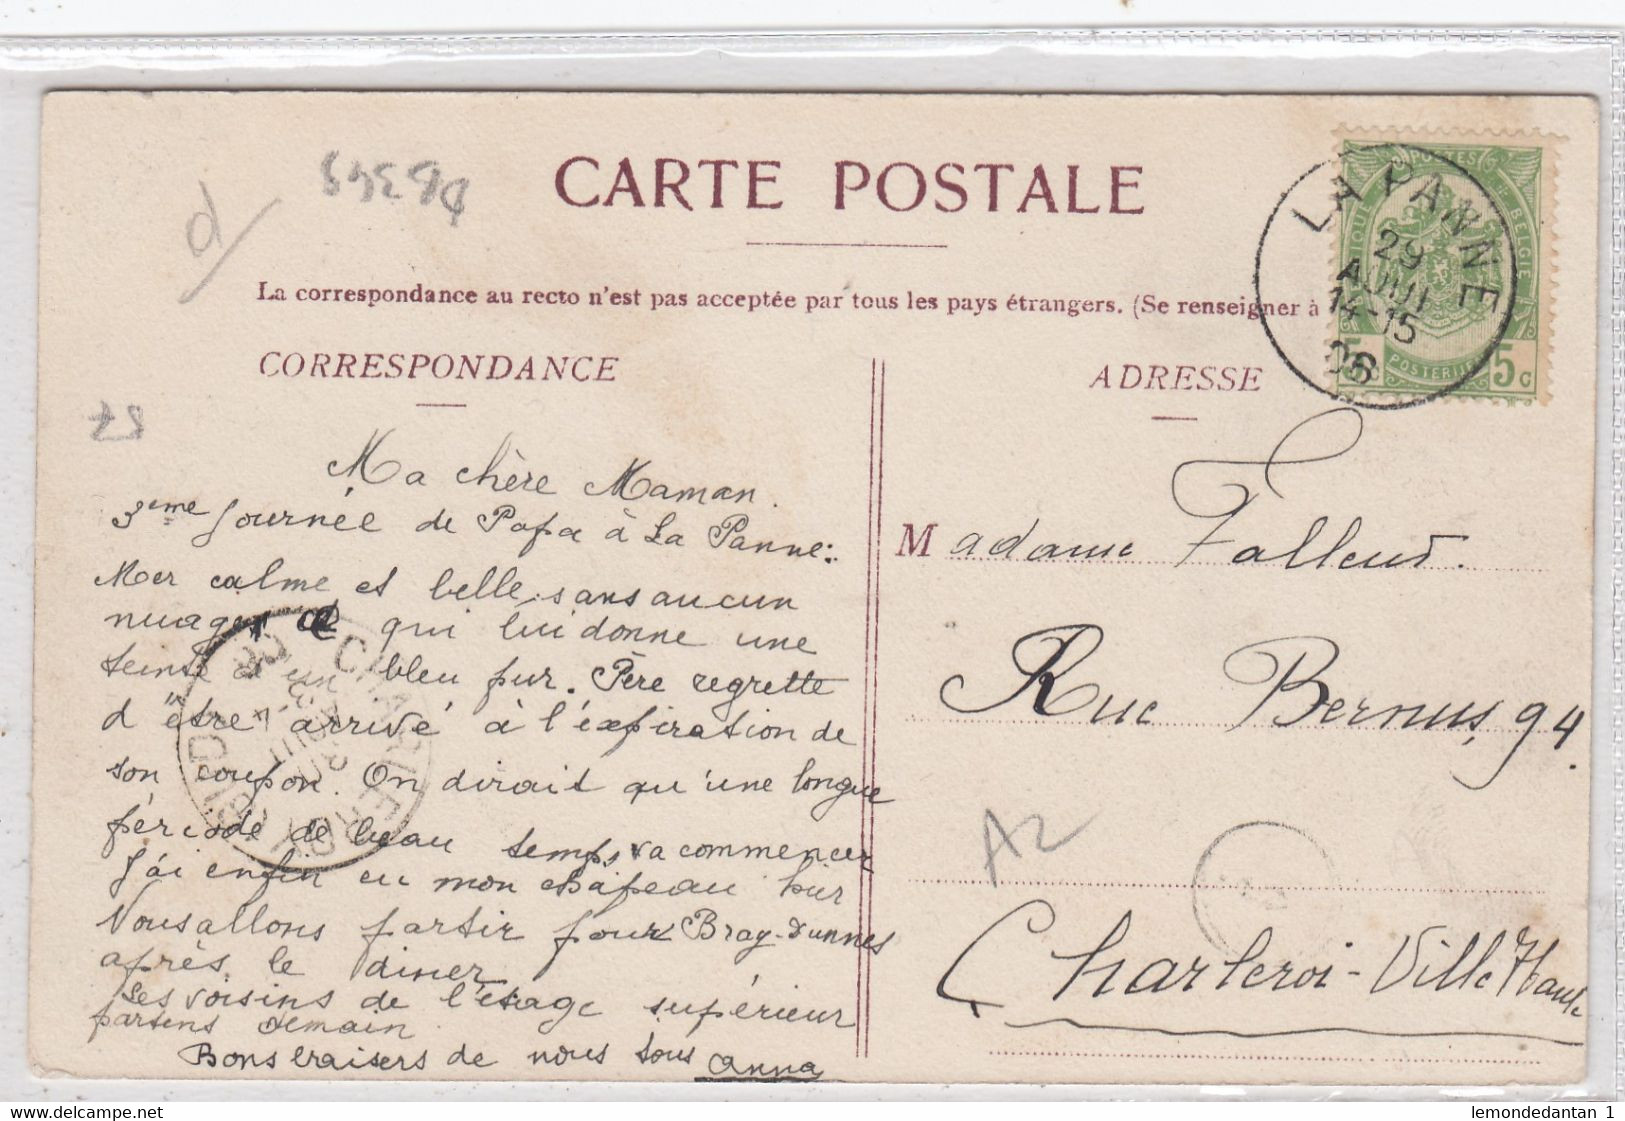 d/
CARTE POSTALE
La correspondance au recto n'est pas acceptée par tous les pays étrangers. (Se renseigner à
CORRESPONDANCE
Ma chère Maman.
3eme journée de Papa à La Panne:
Mer calme et belle, sans aucun
nuage qui lui donne une
teinte d'un bleu pur. Père regrette
d'être arrivé à l'expiration de
son coupon. On dirait qu'une longue
période de beau temps va commencer
J'ai enfin eu mon chapeau hier
Nous allons partir pour Bray-Dunnes
après le diner
Les voisins de l'étage supérieur
partens demain.
Bons braisers de nous tous anna
ADRESSE
Madame Falleur.
Rue Bernus, 94.
Charleroi-Ville Haute
A2
LA PANNE
29
AOUT
14-15
08
POSTES
BELGIQUE
BELGIE
POSTERIJEN
5c 5c
CHARLEROI
delcampe.net
lemondedantan 1